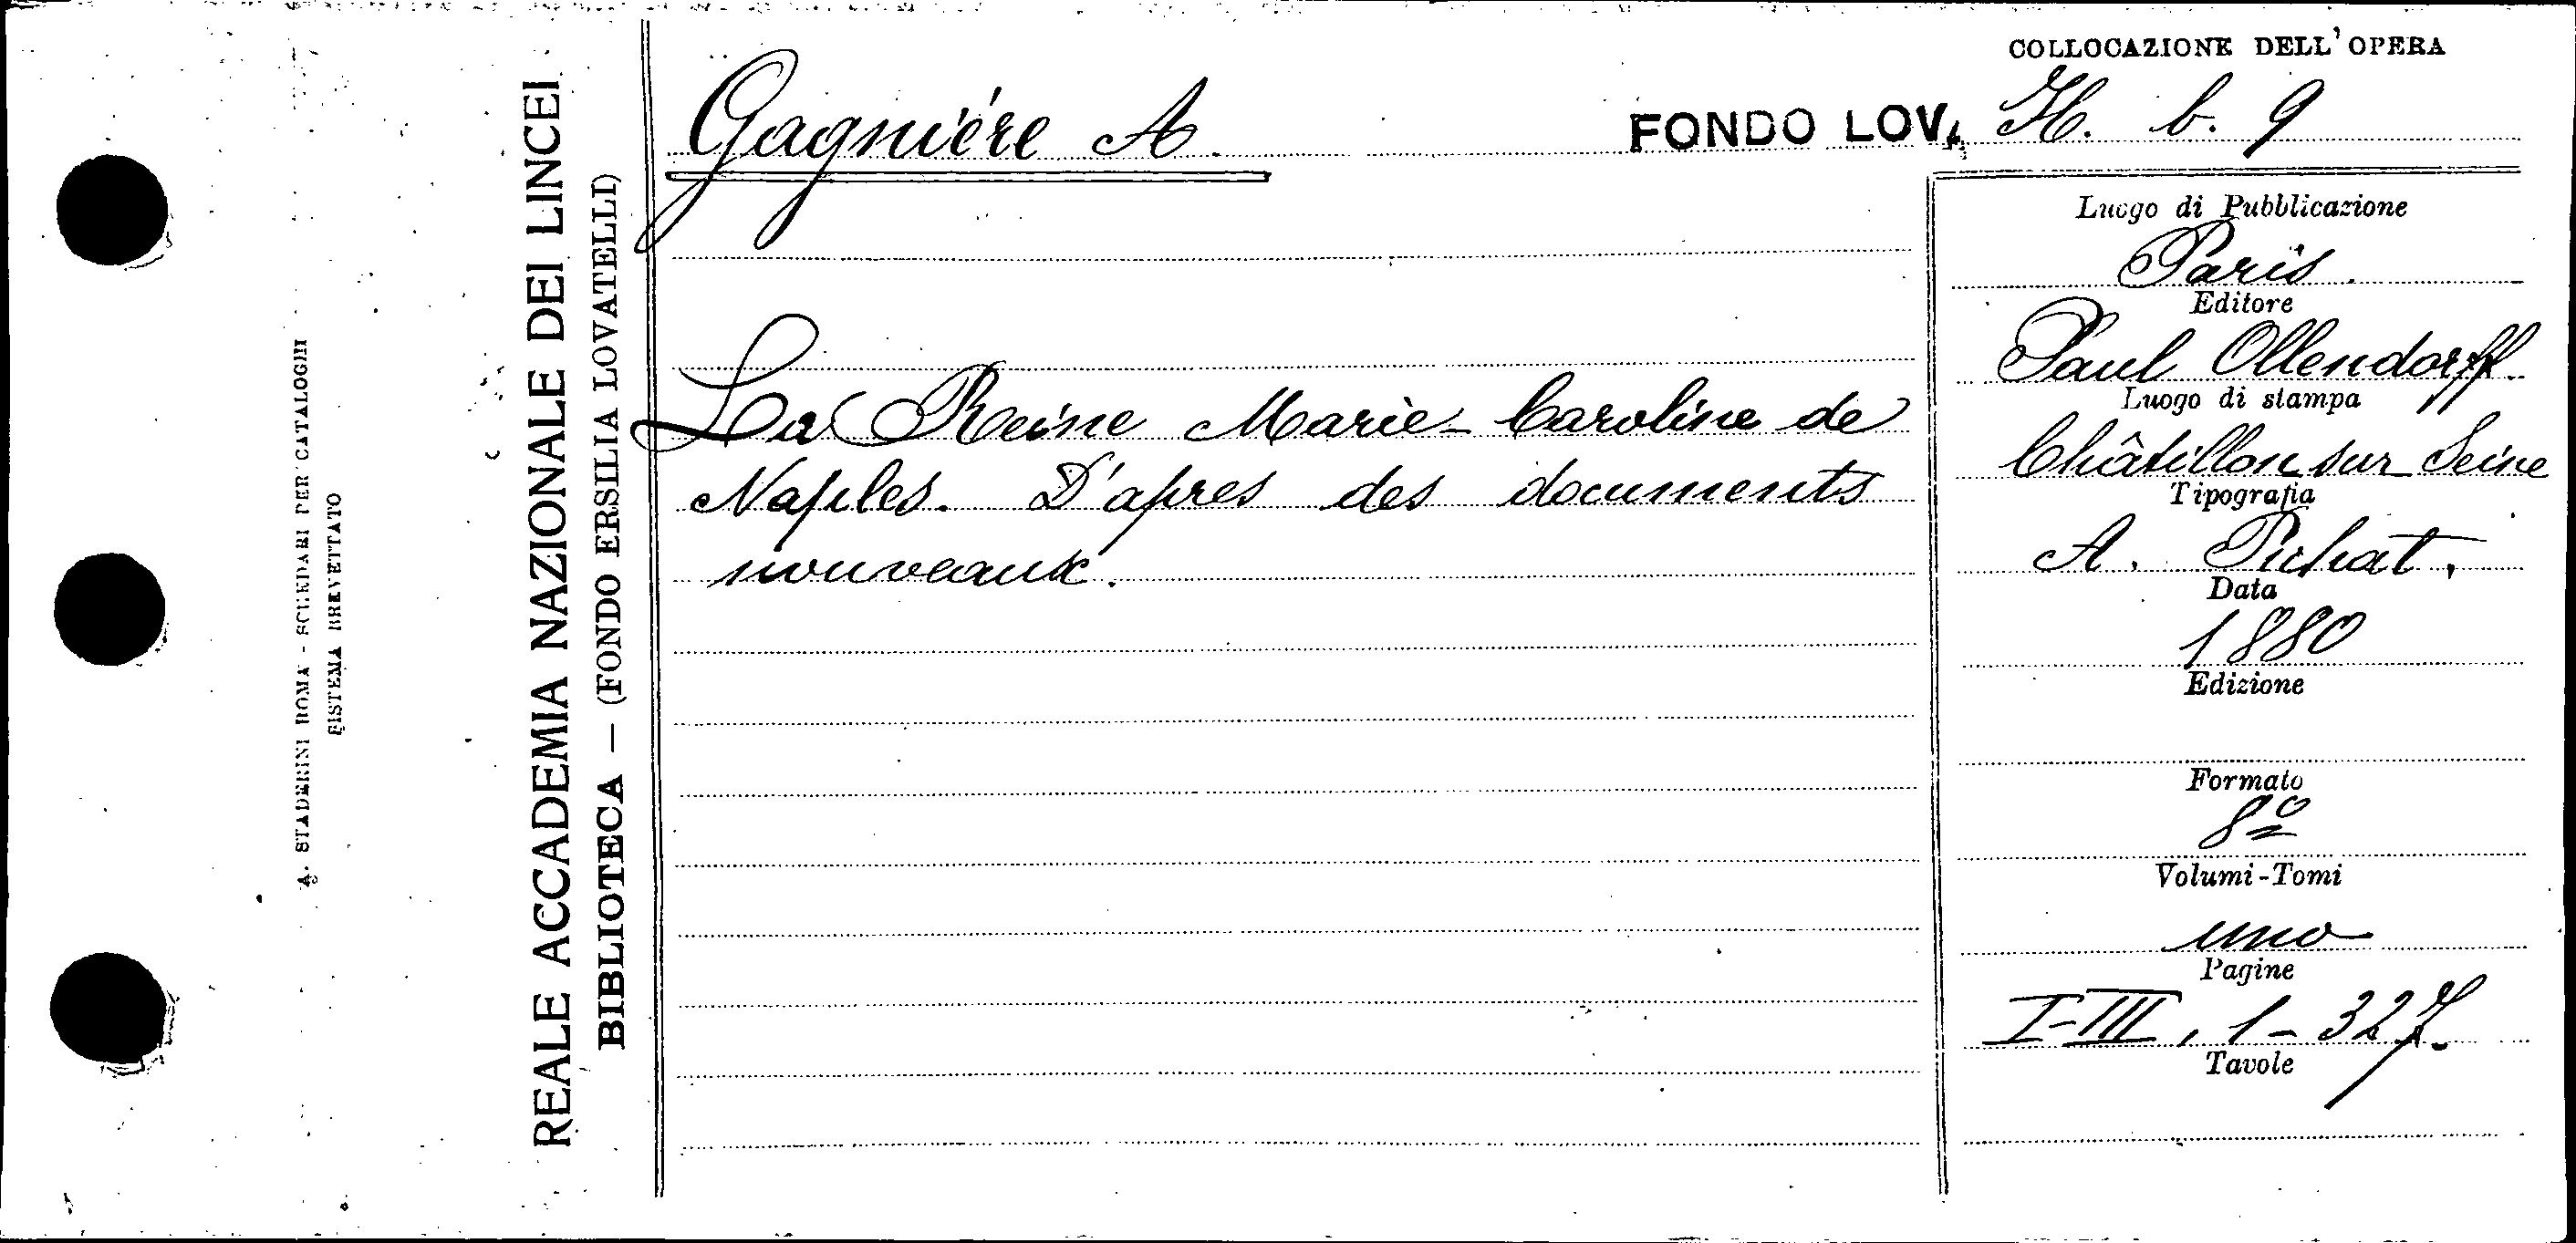 A. STADERINI ROMA - SCHEDARI PER CATALOGHI
SISTEMA BREVETTATO
REALE ACCADEMIA NAZIONALE DEI LINCEI
BIBLIOTECA — (FONDO ERSILIA LOVATELLI)
Gagnière A.
COLLOCAZIONE DELL'OPERA
FONDO LOV. H. b. 9
La Reine Marie-Caroline de
Naples. D'apres des documents
nouveaux.
Luogo di Pubblicazione
Paris.
Editore
Paul Ollendorff.
Luogo di stampa
Châtillon sur Seine
Tipografia
A. Pichat.
Data
1880
Edizione
Formato
8º
Volumi-Tomi
uno
Pagine
I-III, 1-327.
Tavole